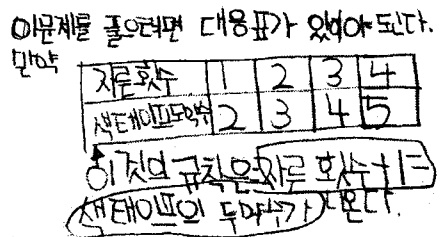 이문제를 풀으려면 대응표가 있어야 된다.
만약
자른횟수 1 2 3 4
색테이프도막수 2 3 4 5
이것의 규칙은 자른 횟수+1=
색테이프의 도막수가 나온다.